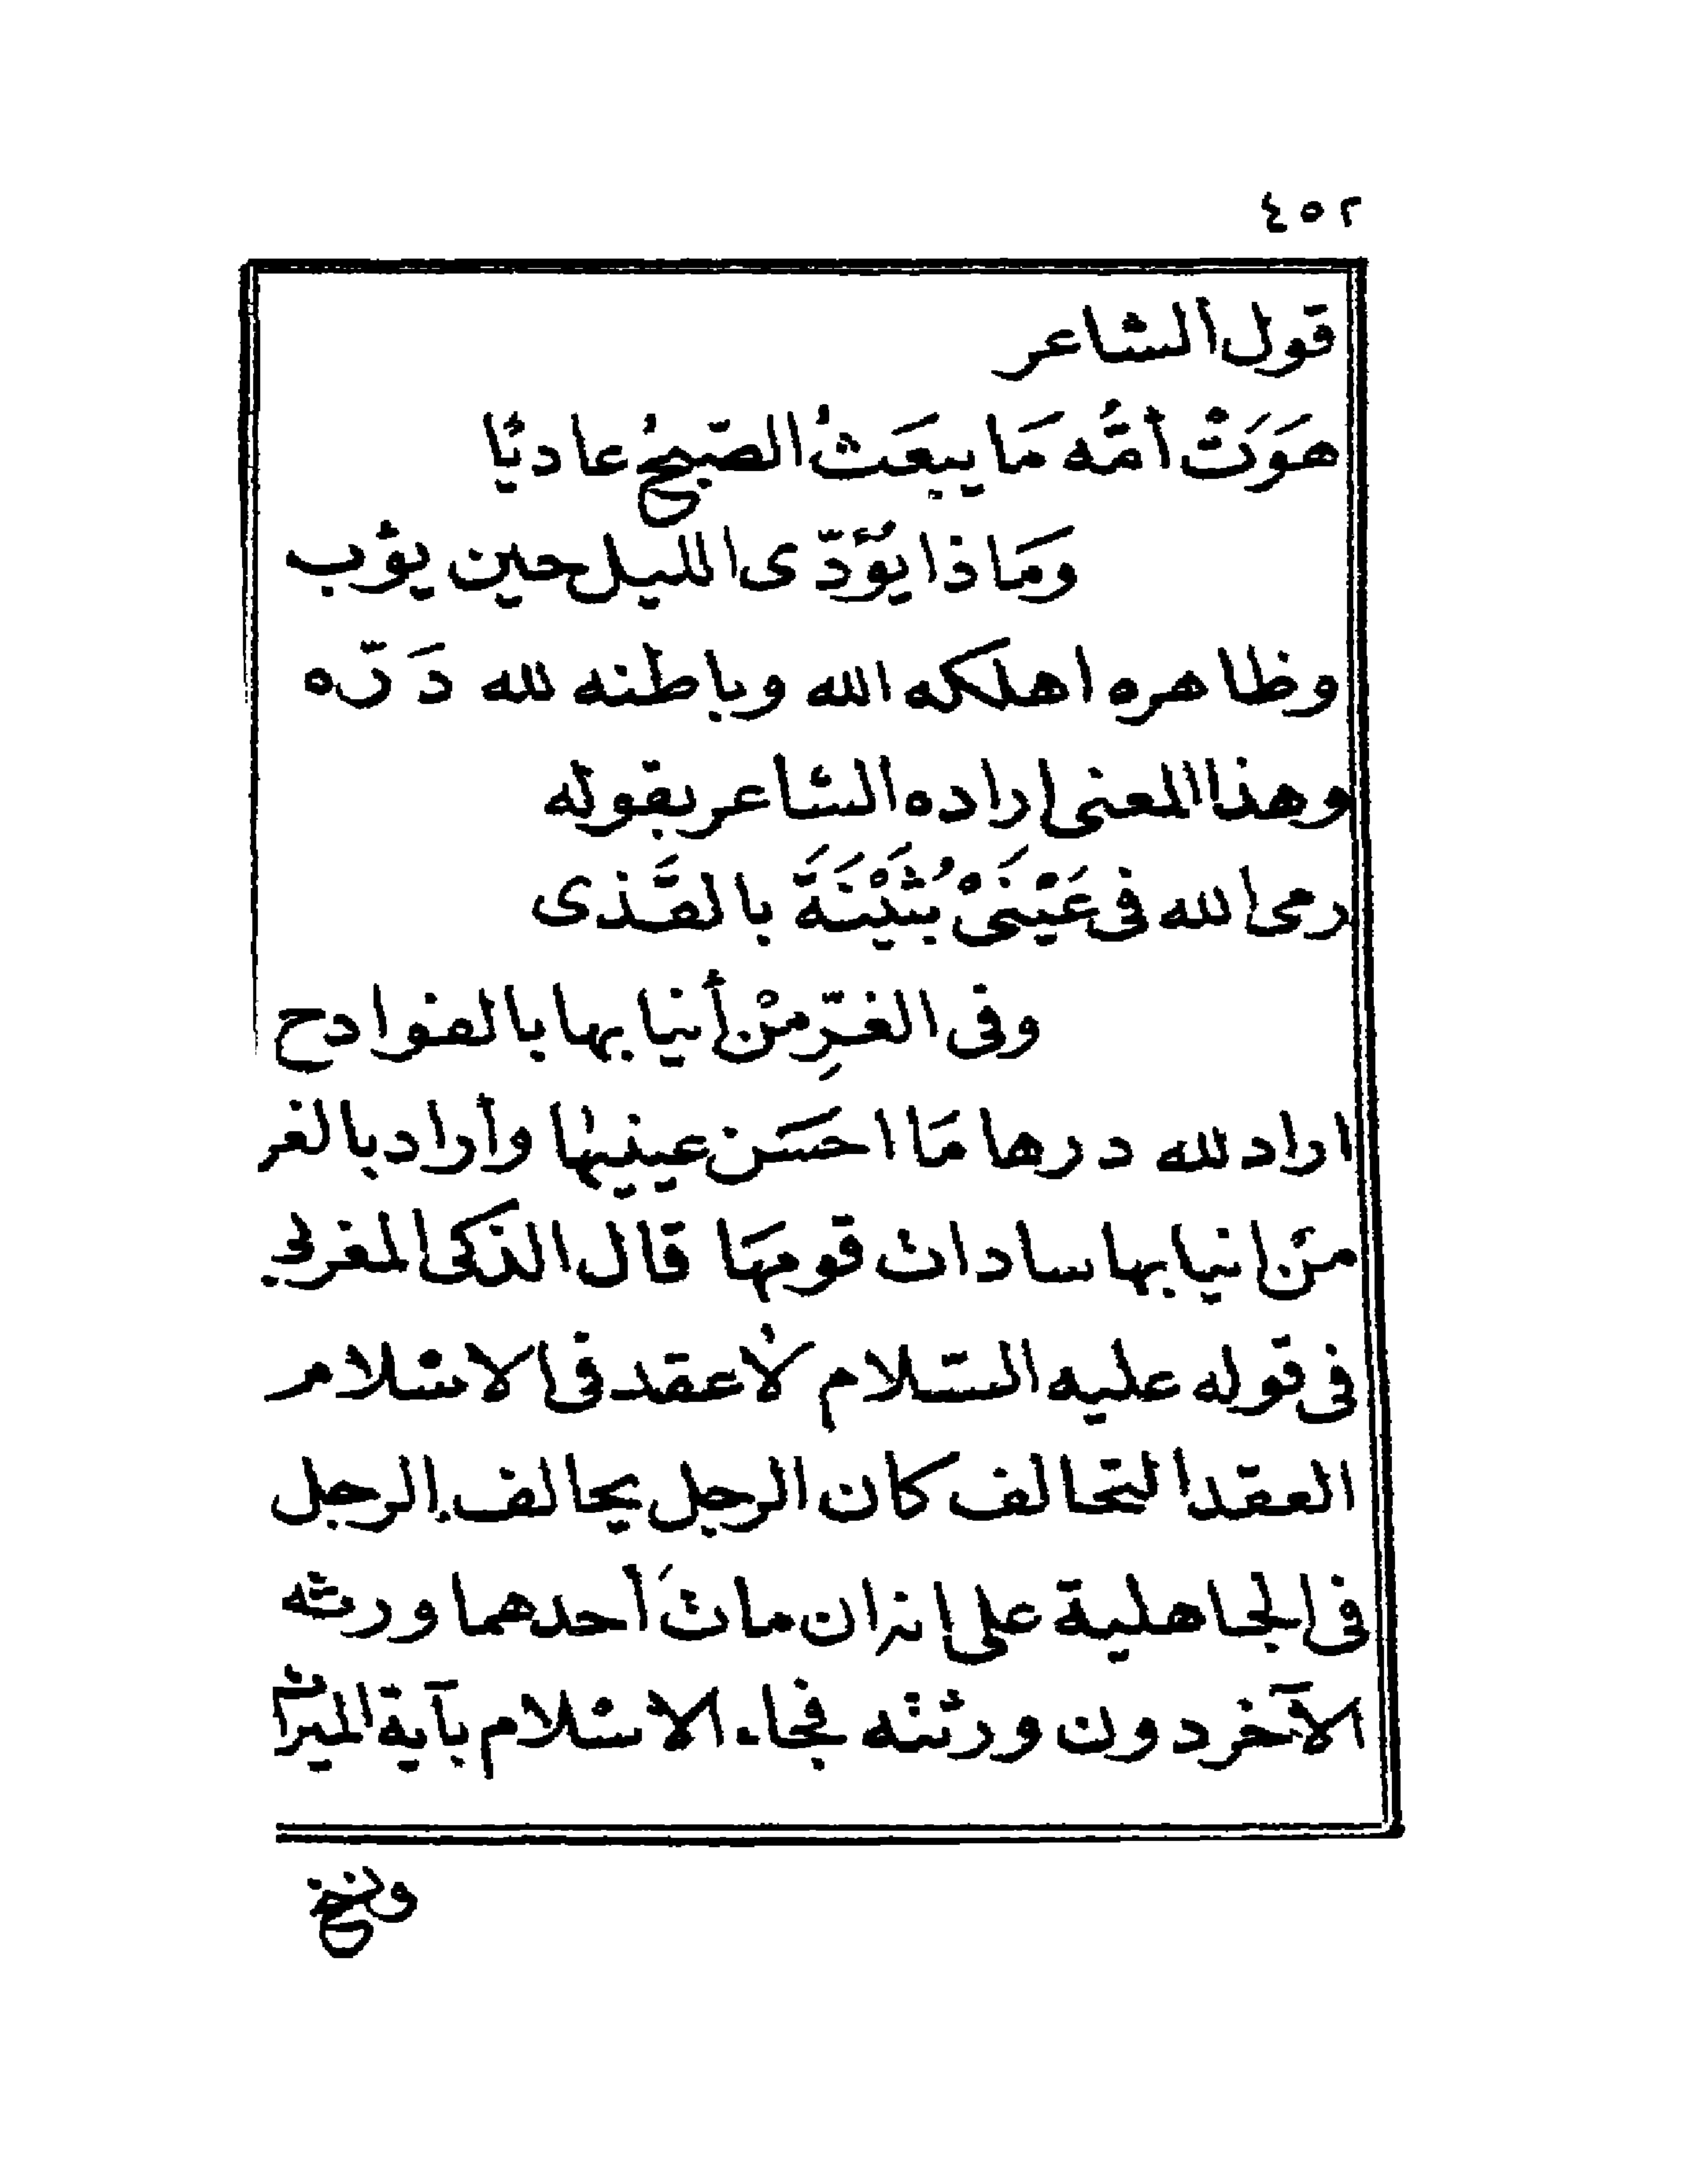 ٤٥٢
قول الشاعر
هَوَتْ أُمُّه مَا يبعَثُ الصّبحُ عاديًا
ومَاذا يُؤدّى الليل حين يؤب
وظاهره اهلكه الله وباطنه لله دَرّه
وهذا المعنى اراده الشاعر بقوله
رمى الله فى عَيْنَىْ بُثَيْنَةَ بالقَذى
وفى الغرِّ منْ أنيابها بالفوادح
اراد لله درها مَا احسَن عينيها وأراد بالغر
منْ انيابها سادات قومهَا قال الذكى المغربى
فى قوله عليه السّلام لاُعقد فى الاسلام
العقد التحالف كان الرجل يحالف الرجل
فى الجاهلية على انه ان ماتَ أحدهما ورثه
الآخر دون ورثته فجاء الاسلام بآية الميراث
ونسخ